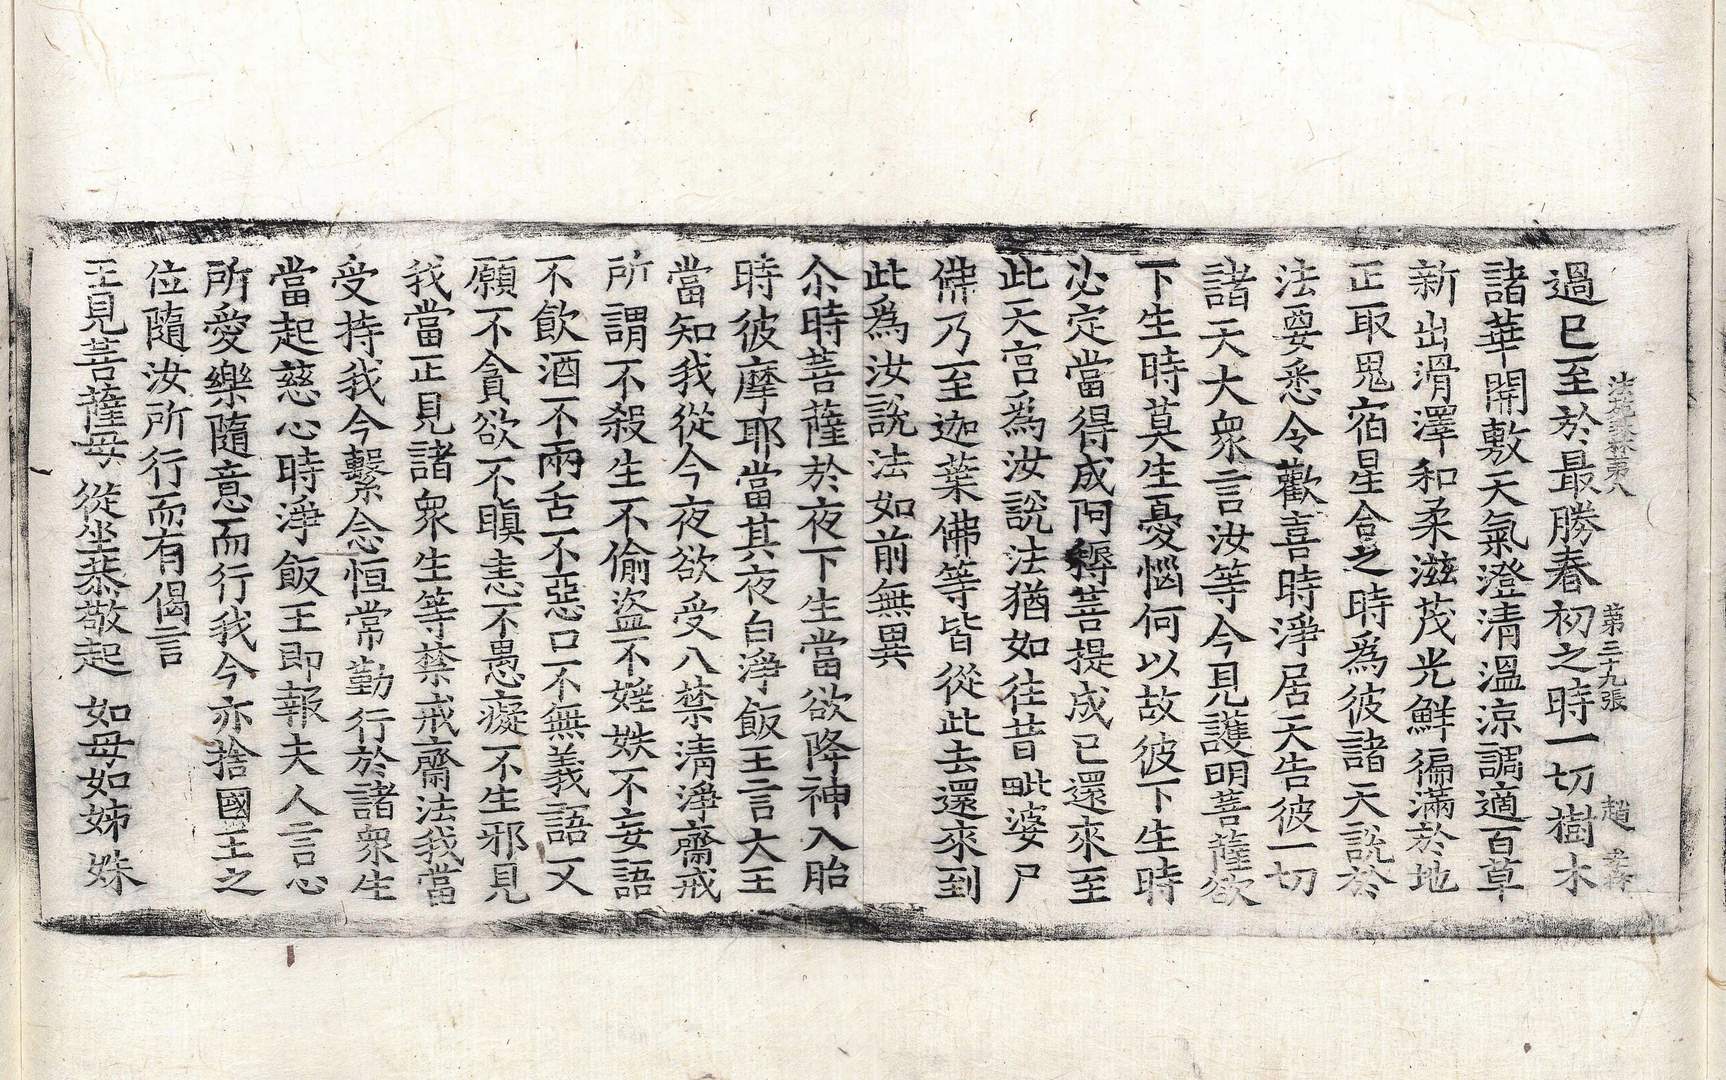 過已至於最勝春初之時一切樹木
諸華開敷天氣澄清溫涼調適百草
新出滑澤和柔滋茂光鮮徧滿於地
正取鬼宿星合之時爲彼諸天說於
法要悉令歡喜時淨居天告彼一切
諸天大衆言汝等今見護明菩薩欲
下生時莫生憂惱何以故彼下生時
必定當得成阿耨菩提成已還來至
此天宮爲汝說法猶如往昔毗婆尸
佛乃至迦葉佛等皆從此去還來到
此爲汝說法如前無異
尒時菩薩於夜下生當欲降神入胎
時彼摩耶當其夜白淨飯王言大王
當知我從今夜欲受八禁清淨齋戒
所謂不殺生不偷盜不婬妷不妄語
不飲酒不兩舌不惡口不無義語又
願不貪欲不瞋恚不愚癡不生邪見
我當正見諸衆生等禁戒齋法我當
受持我今繫念恒常勤行於諸衆生
當起慈心時淨飯王即報夫人言心
所愛樂隨意而行我今亦捨國王之
位隨汝所行而有偈言
王見菩薩母 從坐恭敬起 如母如姊妹
法苑珠林苐八 苐三十九張 趙